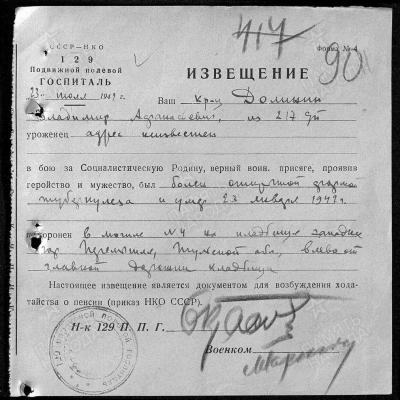 417
СССР—НКО
129
Подвижной полевой
ГОСПИТАЛЬ
Форма № 4
90
ИЗВЕЩЕНИЕ
23 1942 г.
Ваш кр-ц Долинин
Владимир Афанасьевич, из 217 дп
уроженец адрес неизвестен
в бою за Социалистическую Родину, верный воин. присяге, проявив
геройство и мужество, был болен открытой формой
туберкулеза и умер 23 января 1942 г.
похоронен в могиле № 4 на кладбище западнее
гор Перемышля, Тульской обл, влево от
главной дорожки кладбища
Настоящее извещение является документом для возбуждения хода-
тайства о пенсии (приказ НКО СССР).
Н-к 129 П. П. Г.
Военком